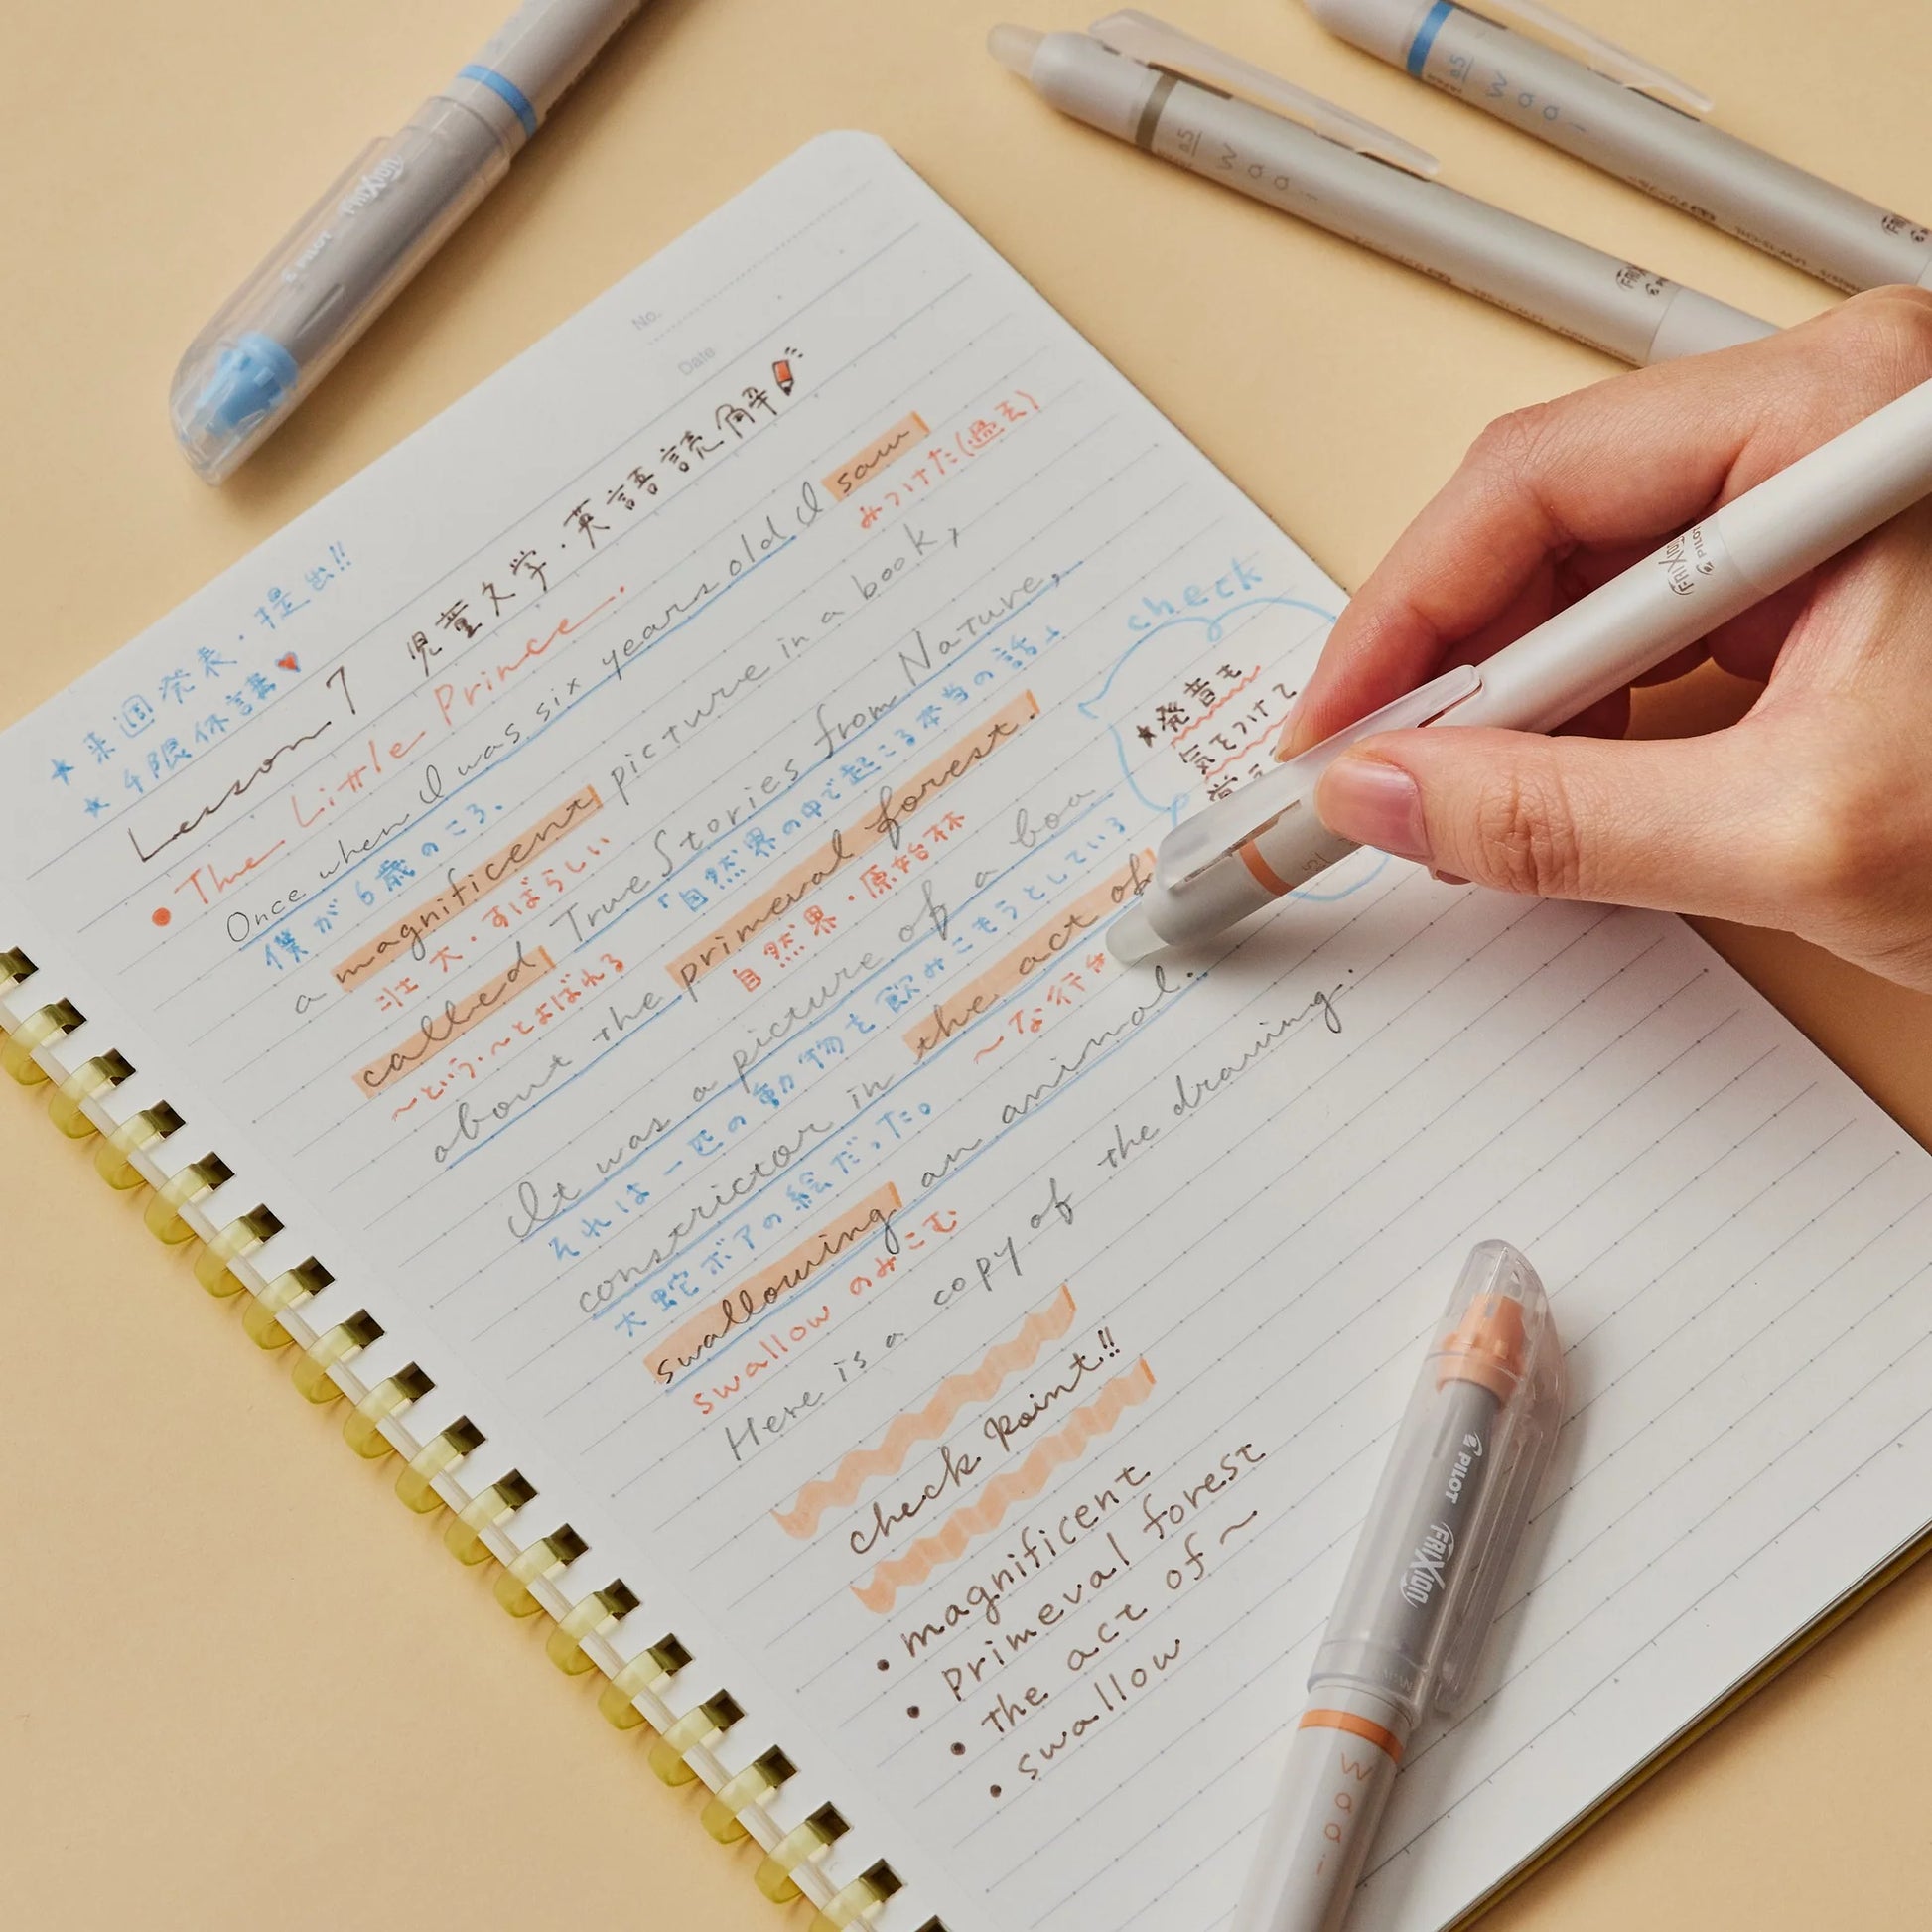 No.
Date
★来週発表・提出!!
★4限休講
Lesson 7 児童文学・英語読解
The Little Prince.
Once when I was six years old I saw
僕が6歳のころ、
みつけた(過去)
a magnificent picture in a book,
壮大・すばらしい
called True Stories from Nature,
〜という・〜とよばれる
「自然界の中で起こる本当の話」
about the primeval forest.
自然界・原始林
It was a picture of a boa
それは一匹の動物を飲みこもうとしている
constrictor in the act of
大蛇ボアの絵だった。
〜な行
swallowing an animal.
swallow のみこむ
Here is a copy of the drawing.
check
★発音も
気をつけて
check point!!
・magnificent
・primeval forest
・the act of〜
・swallow
FRIXION
PILOT
0.5
Waai
FRIXION
0.5
Waai
FRIXION
FRIXION
PILOT
PILOT
FRIXION
Waai